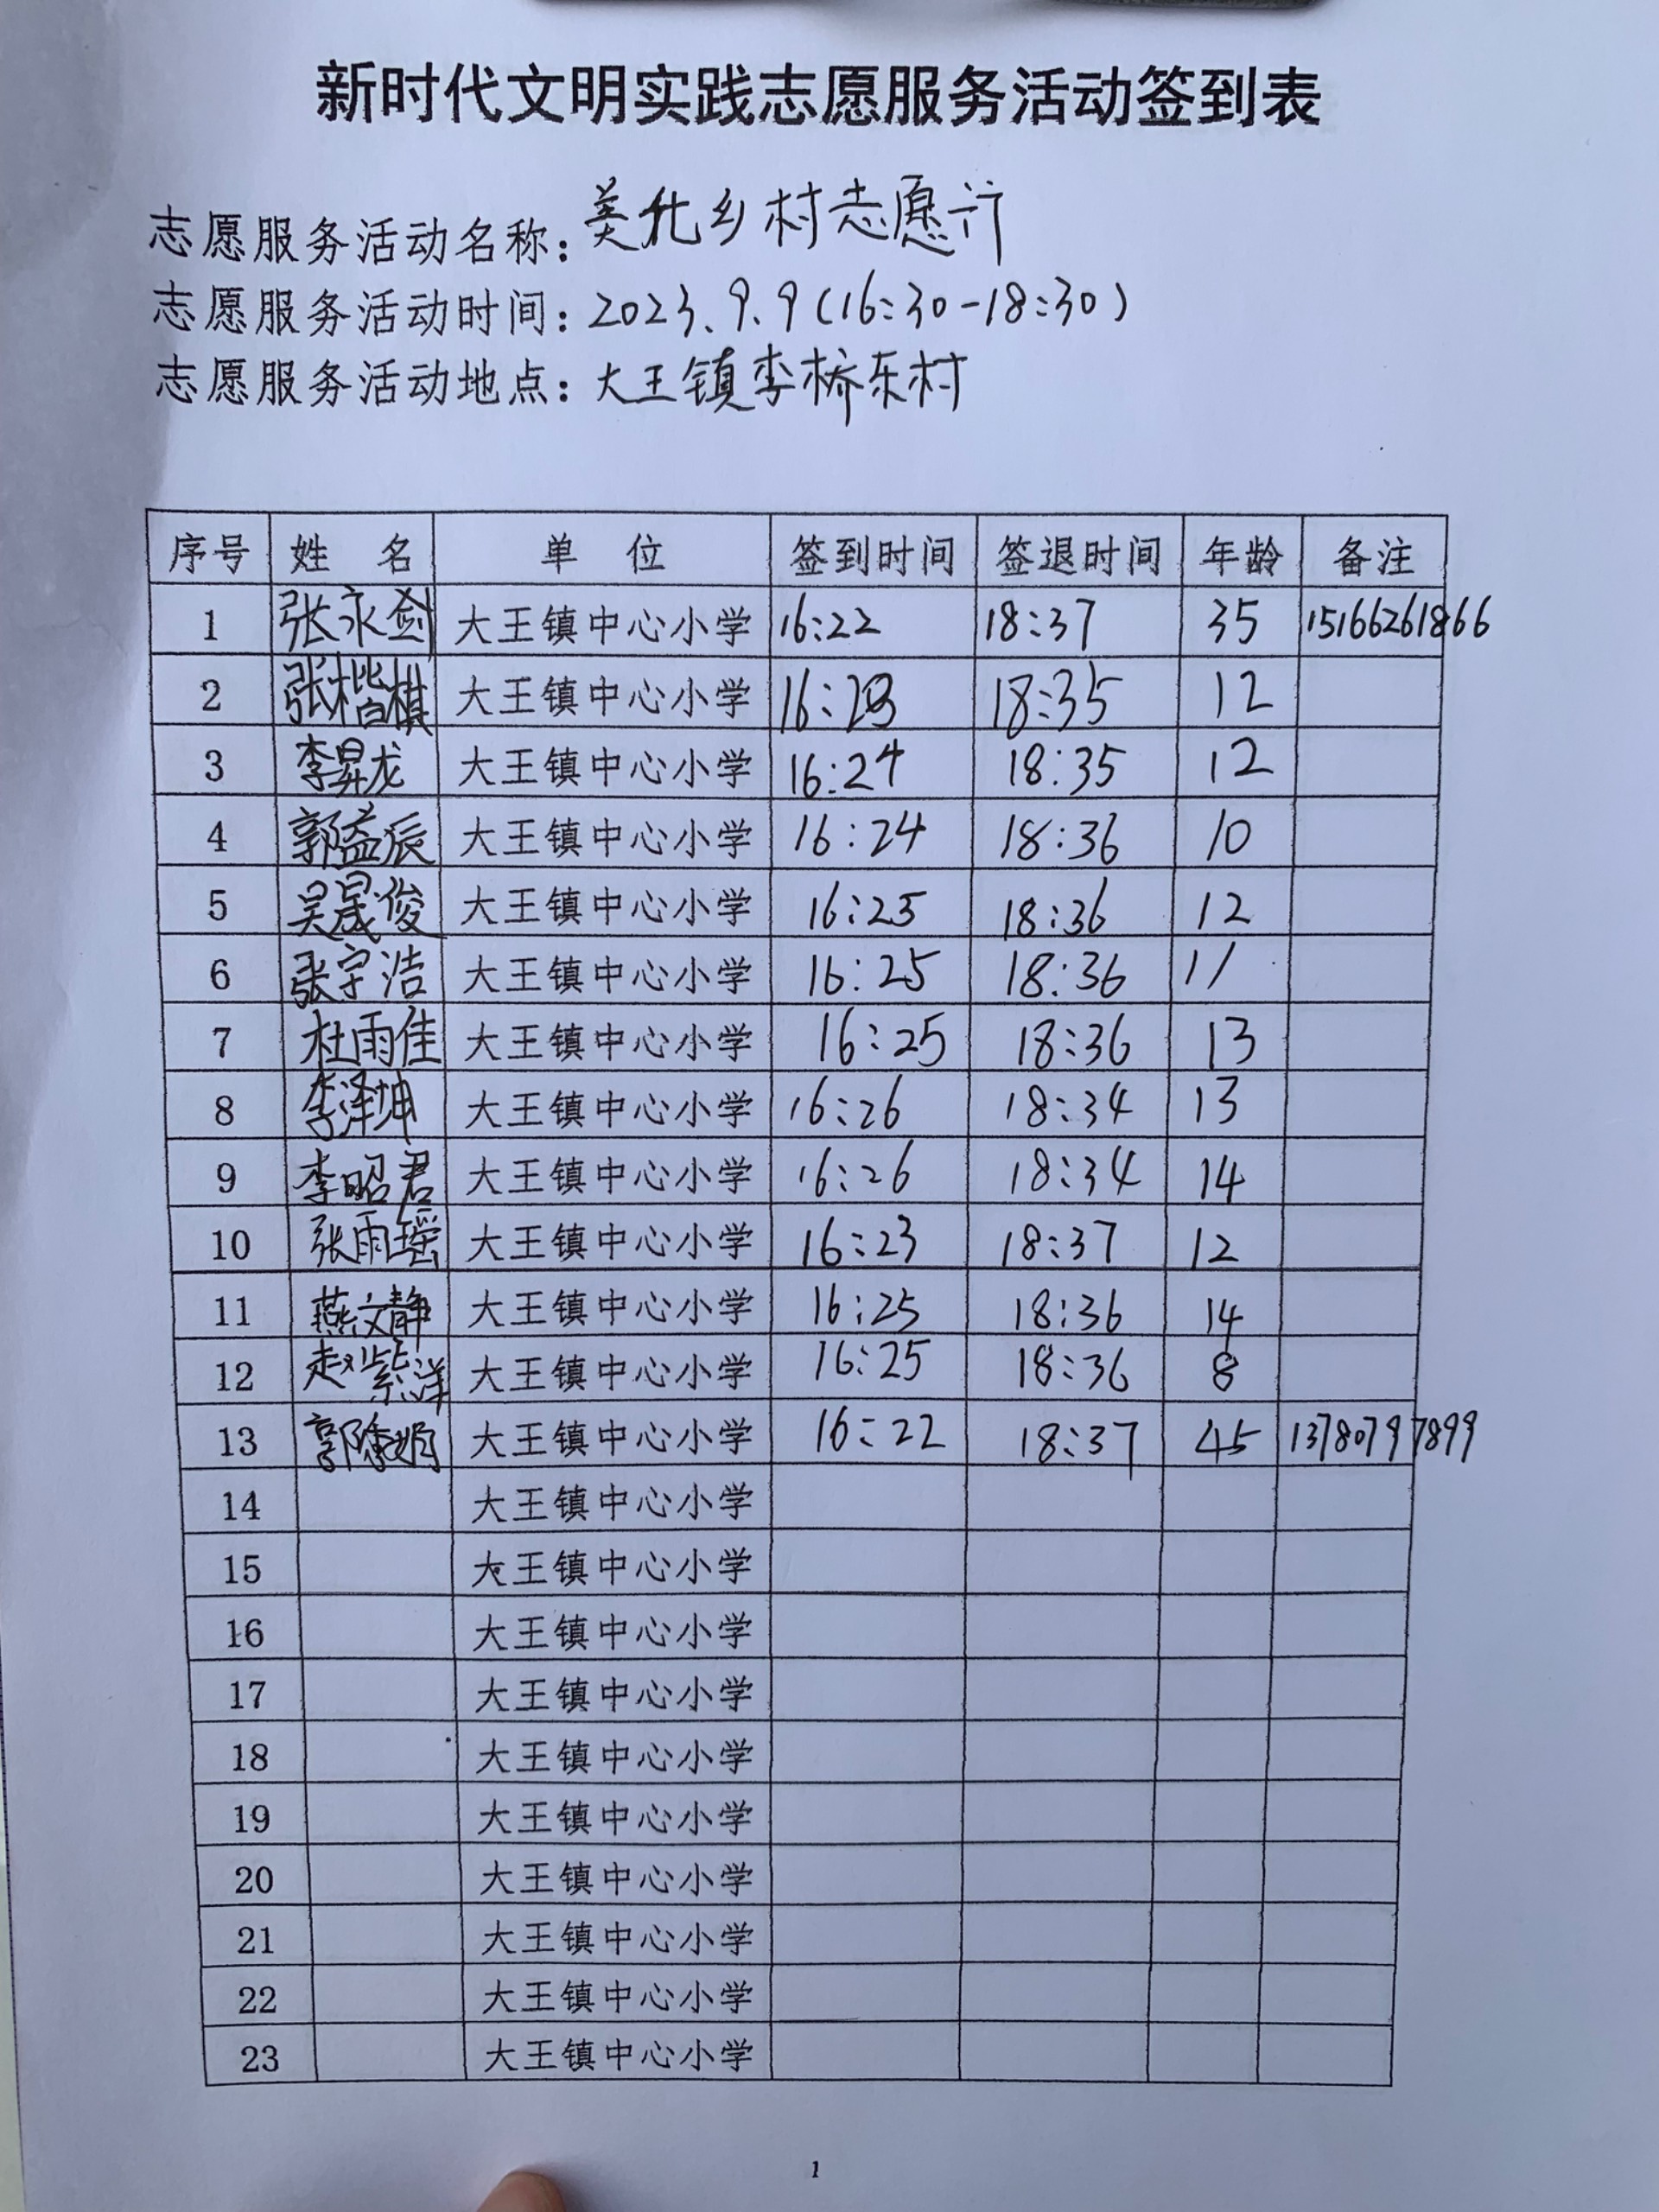 新时代文明实践志愿服务活动签到表
志愿服务活动名称：美化乡村志愿行
志愿服务活动时间：2023.9.9（16:30-18:30）
志愿服务活动地点：大王镇李桥东村
序号 姓名 单位 签到时间 签退时间 年龄 备注
1 张永剑 大王镇中心小学 16:22 18:37 35 15166261866
2 张楷棋 大王镇中心小学 16:23 18:35 12
3 李昇龙 大王镇中心小学 16:24 18:35 12
4 郭益辰 大王镇中心小学 16:24 18:36 10
5 吴晟俊 大王镇中心小学 16:25 18:36 12
6 张宇浩 大王镇中心小学 16:25 18:36 11
7 杜雨佳 大王镇中心小学 16:25 18:36 13
8 李泽坤 大王镇中心小学 16:26 18:34 13
9 李昭君 大王镇中心小学 16:26 18:34 14
10 张雨瑶 大王镇中心小学 16:23 18:37 12
11 燕文静 大王镇中心小学 16:25 18:36 14
12 赵紫洋 大王镇中心小学 16:25 18:36 8
13 郭 大王镇中心小学 16:22 18:37 45 13780797899
14 大王镇中心小学
15 大王镇中心小学
16 大王镇中心小学
17 大王镇中心小学
18 大王镇中心小学
19 大王镇中心小学
20 大王镇中心小学
21 大王镇中心小学
22 大王镇中心小学
23 大王镇中心小学
1